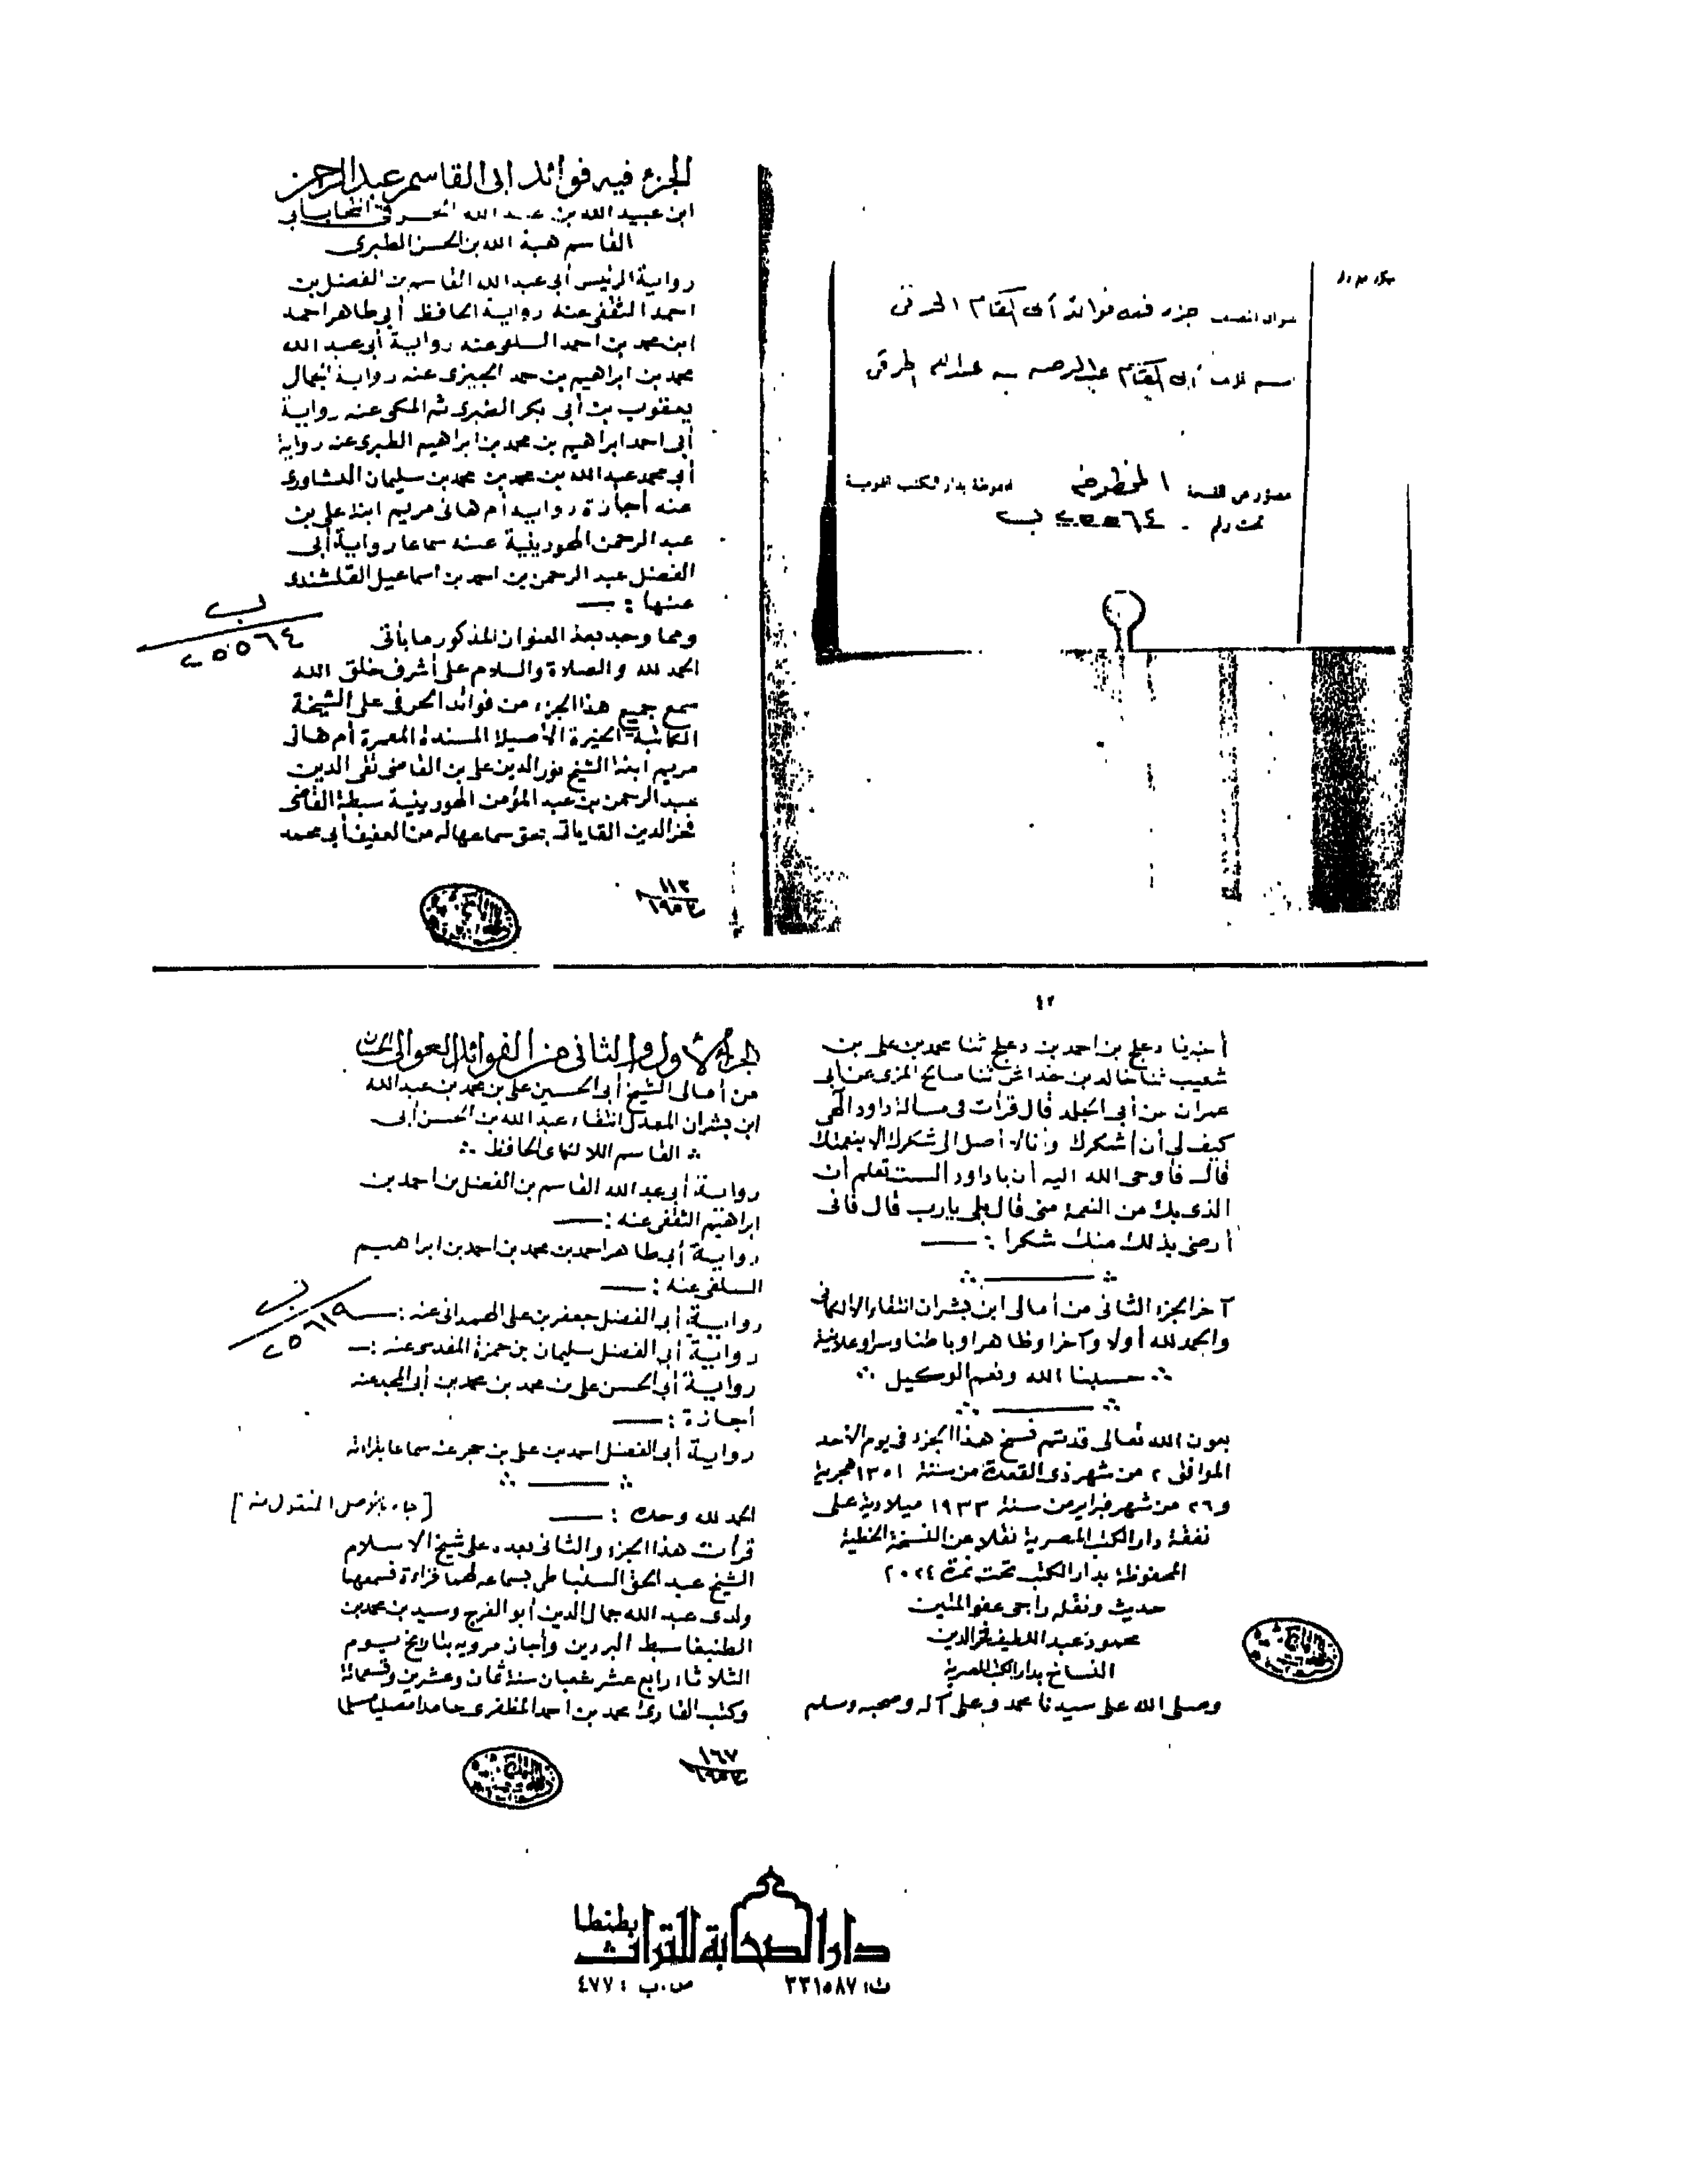 عنوان المصنف جزء فيه فوائد أبى القاسم الحرفى
اسم المؤلف أبى القاسم عبد الرحمن بن عبد الله الحرفى
مصور من النسخة المخطوطة المحفوظة بدار الكتب القومية
تحت رقم ٢٥٥٦٤ ب
الجزء فيه فوائد ابى القاسم عبد الرحمن
ابن عبيد الله بن عبد الله الحرفى انتخاب ابى
القاسم هبة الله بن الحسن الطبرى
رواية الرئيس أبى عبد الله القاسم بن الفضل بن
احمد الثقفى عنه رواية الحافظ أبى طاهر احمد
ابن محمد بن احمد السلفى عنه رواية أبى عبد الله
محمد بن ابراهيم بن حمد الجيزى عنه رواية الجمال
يعقوب بن أبى بكر الطبرى ثم المكى عنه رواية
أبى احمد ابراهيم بن محمد بن ابراهيم الطبرى عنه رواية
أبى محمد عبد الله بن محمد بن محمد بن سليمان النشاورى
عنه أجازة رواية أم هانى مريم ابنة على بن
عبد الرحمن الهورينية عنه سماعا رواية أبى
الفضل عبد الرحمن بن احمد بن اسماعيل القلشندى
عنها :ـــ
ومما وجد بعد العنوان المذكور ما يأتى
الحمد لله والصلاة والسلام على أشرف خلق الله
سمع جميع هذا الجزء من فوائد الحرفى على الشيخة
الكاتبة الخيرة الأصيلا المسندة المعمرة أم هانى
مريم أبنة الشيخ نور الدين على بن القاضى تقى الدين
عبد الرحمن بن عبد المؤمن الهورينية سبطة القاضى
فخر الدين القاياتى بحق سماعها له من العفيف أبى محمد
ب
٢٥٥٦٤
١١٢
١٩٥٢
٤٢
أخبرنا دعلج بن احمد بن دعلج ثنا محمد بن على بن
شعيب ثنا خالد بن خداش ثنا صالح المزى عن أبى
عمران عن أبى الجلد قال قرأت فى مسألة داود الهى
كيف لى أن أشكرك وأنا لا أصل الى شكرك الا بنعمتك
قال فأوحى الله اليه أن يا داود الست تعلم أن
الذى بك من النعمة منى قال بلى يارب قال فانى
أرضى بذلك منك شكرا :ـــ
آخر الجزء الثانى من أمالى ابن بشران انتقاء الالكانى
والحمد لله أولا وآخرا وظاهرا وباطنا وسرا وعلانية
حسبنا الله ونعم الوكيل
بعون الله تعالى قد تم نسخ هذا الجزء فى يوم الأحد
الموافق ٢ من شهر ذى القعدة من سنة ١٣٥١ هجرية
و٢٦ من شهر فبراير من سنة ١٩٣٣ ميلادية على
نفقة دار الكتب المصرية نقلا عن النسخة الخطية
المحفوظة بدار الكتب تحت نمرة ٢٠٢٤
حديث ونقله راجى عفو المنين
محمود عبد اللطيف فخر الدين
النساخ بدار الكتب المصرية
وصلى الله على سيدنا محمد وعلى آله وصحبه وسلم
الجزء الأول والثانى من الفوائد العوالى الحسان
من أمالى الشيخ أبى الحسين على بن محمد بن عبد الله
ابن بشران المعدل انتقاء عبد الله بن الحسن أبى
القاسم اللالكماى الحافظ
رواية أبى عبد الله القاسم بن الفضل بن احمد بن
ابراهيم الثقفى عنه :ـــ
رواية أبى طاهر احمد بن محمد بن احمد بن ابراهيم
السلفى عنه :ـــ
رواية أبى الفضل جعفر بن على الهمدانى عنه :ـــ
رواية أبى الفضل سليمان بن حمزة المقدسى عنه :ـــ
رواية أبى الحسن على بن محمد بن محمد بن أبى المجد عنه
أجازة :ـــ
رواية أبى الفضل احمد بن على بن حجر عنه سماعا بقراءته
ب
٢٥٦١٩
الحمد لله وحده :ـــ [جاء بالأصل المنقول منه]
قرأت هذا الجزء والثانى بعده على شيخ الاسلام
الشيخ عبد الحق السنباطى بسماعه لهما قراءة فسمعها
ولدى عبد الله جمال الدين أبو الفرج وسيد بن محمد بن
الطنبغا سبط البردين وأجاز مرويه بتاريخ يوم
الثلاثاء رابع عشر شعبان سنة ثمان وعشرين وتسعمائة
وكتب القارئ محمد بن احمد المظفرى حامدا مصليا مسلما
١٦٧
١٩٥٢
دار الصحابة للتراث بطنطا
ت: ٣٣١٥٨٧ ص.ب : ٤٧٧